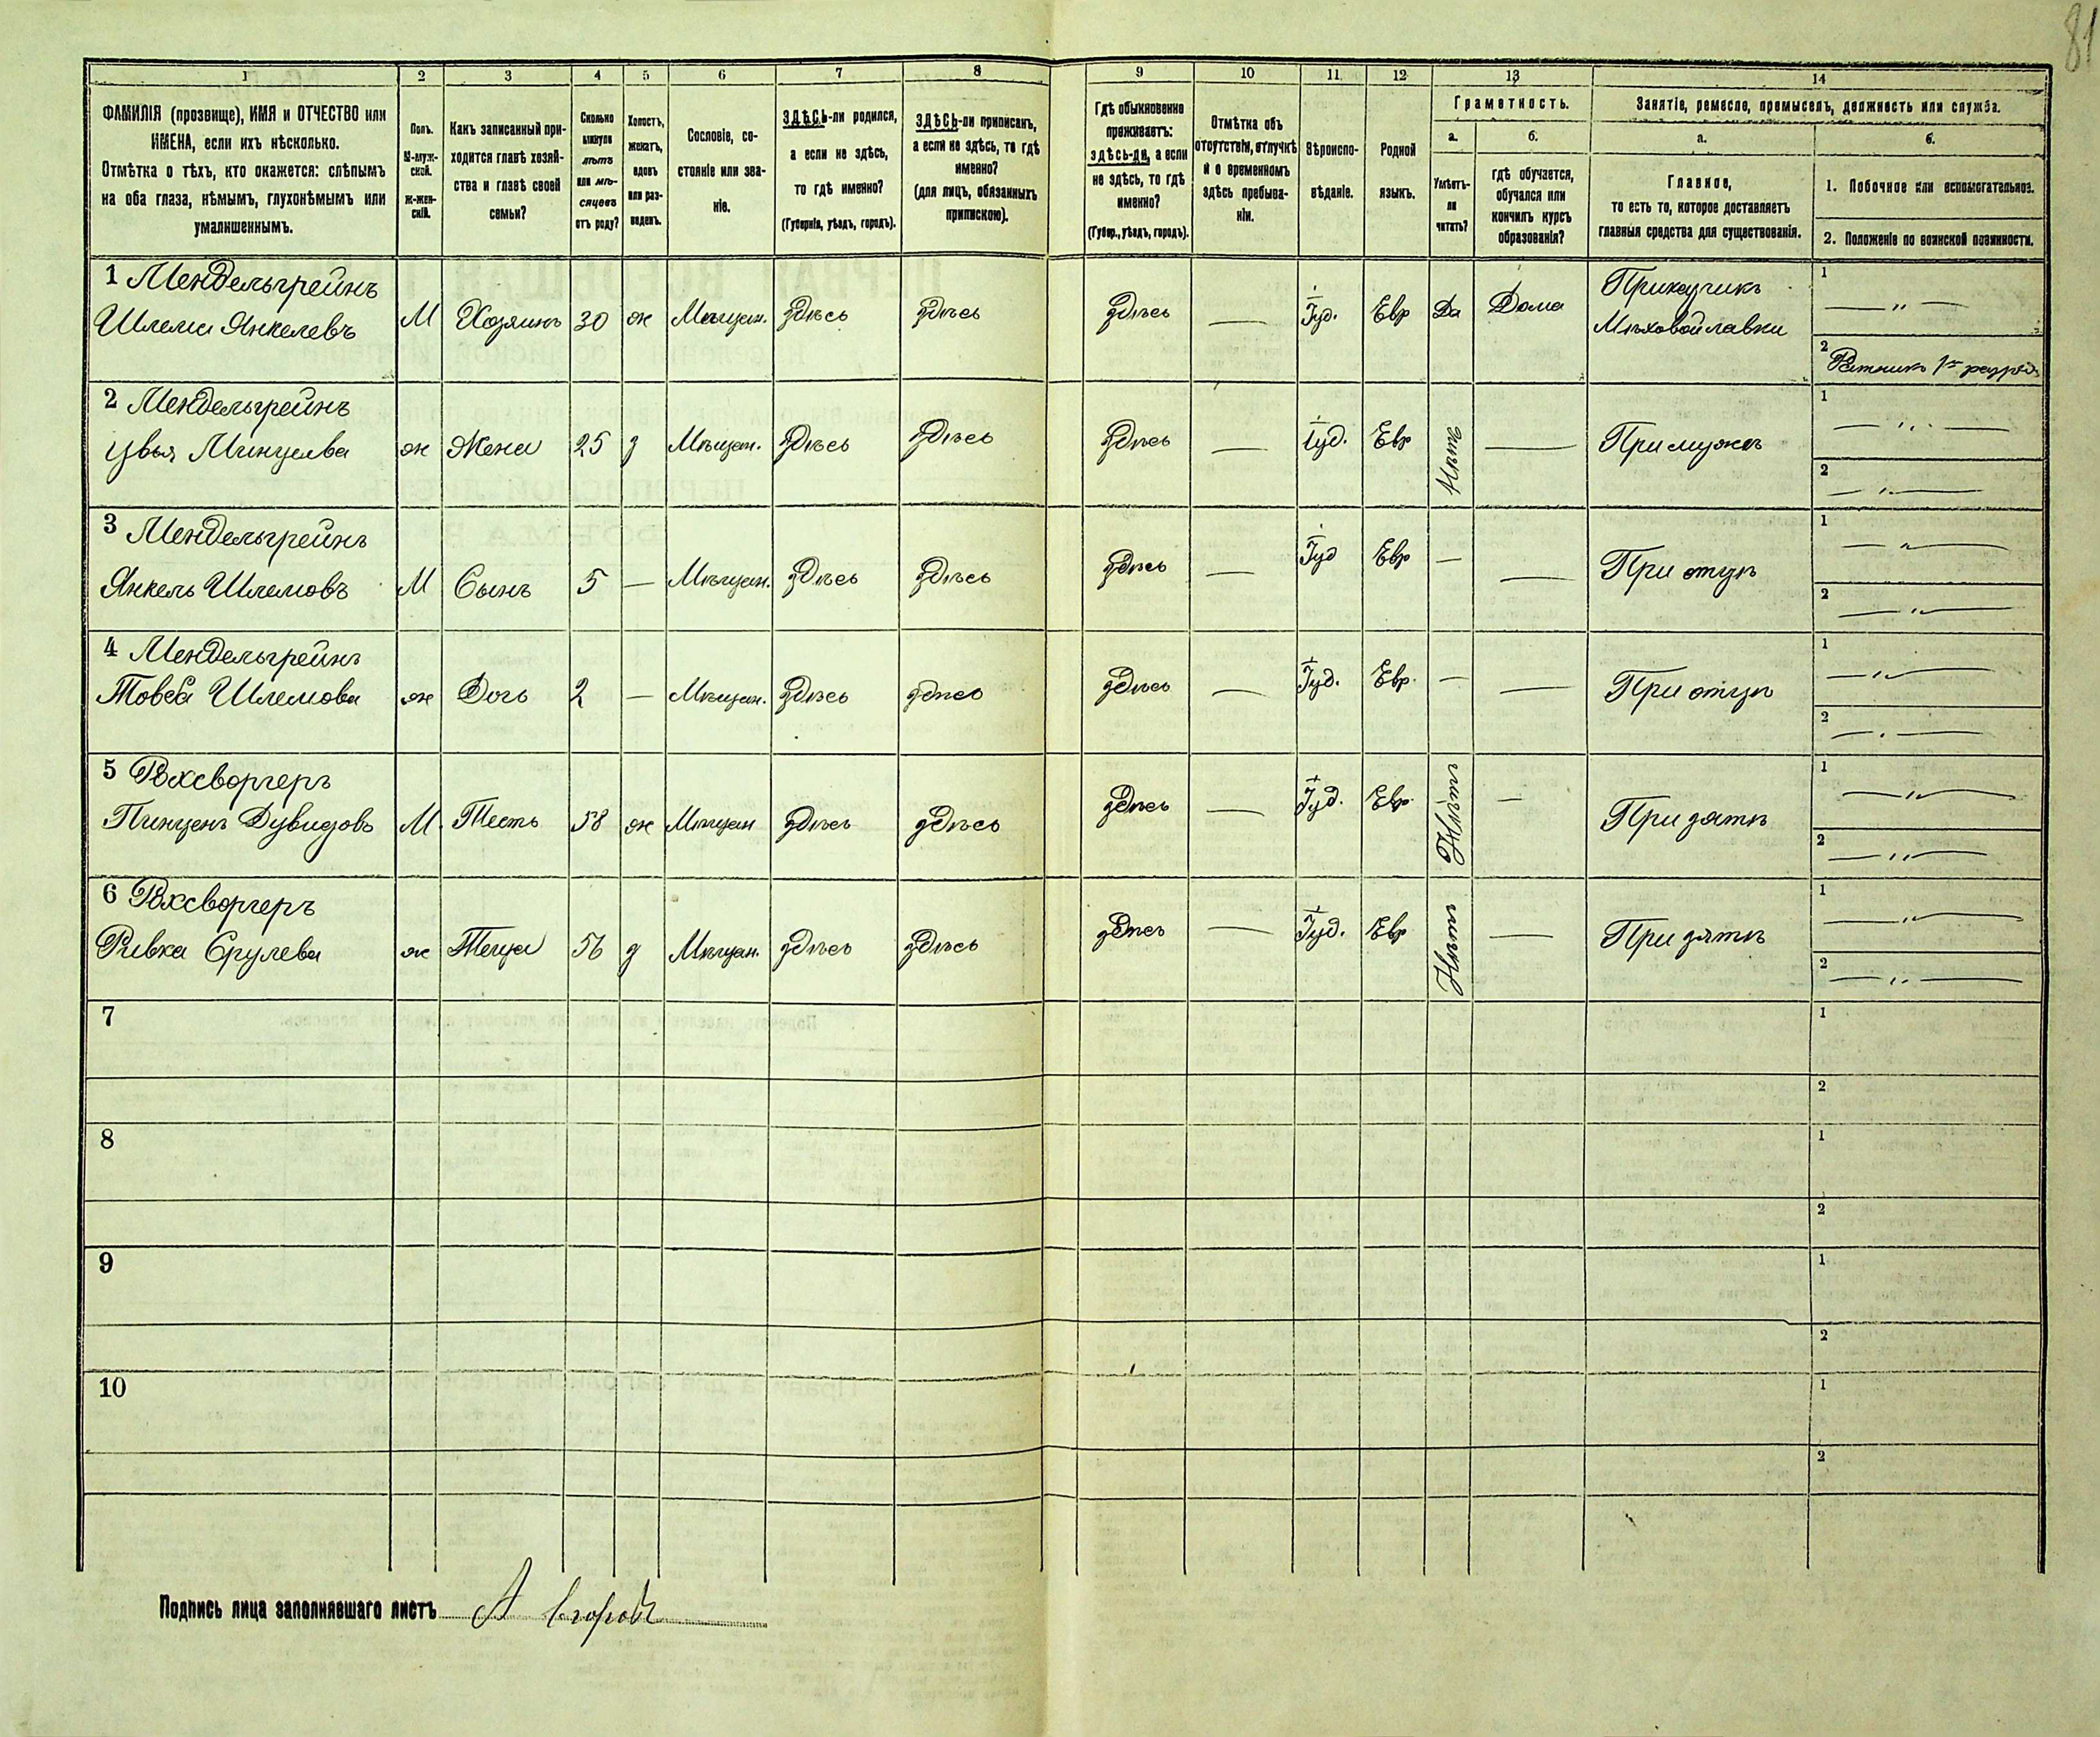 81
1 2 3 4 5 6 7 8 9 10 11 12 13 14
ФАМИЛІЯ (прозвище), ИМЯ и ОТЧЕСТВО или
ИМЕНА, если ихъ нѣсколько.
Отмѣтка о тѣхъ, кто окажется: слѣпымъ
на оба глаза, нѣмымъ, глухонѣмымъ или
умалишеннымъ.
Полъ.
М-муж-
ской.
Ж-жен-
скій.
Какъ записанный при-
ходится главѣ хозяй-
ства и главѣ своей
семьи?
Сколько
минуло
лѣтъ
или мѣ-
сяцевъ
отъ роду?
Холостъ,
женатъ,
вдовъ
или раз-
веденъ.
Сословіе, со-
стояніе или зва-
ніе.
ЗДѢСЬ-ли родился,
а если не здѣсь,
то гдѣ именно?
(Губернія, уѣздъ, городъ).
ЗДѢСЬ-ли приписанъ,
а если не здѣсь, то гдѣ
именно?
(для лицъ, обязанныхъ
припискою).
Гдѣ обыкновенно
проживаетъ:
здѣсь-ли, а если
не здѣсь, то гдѣ
именно?
(Губер., уѣздъ, городъ).
Отмѣтка объ
отсутствіи, отлучкѣ
и о временномъ
здѣсь пребыва-
ніи.
Вѣроиспо-
вѣданіе.
Родной
языкъ.
Грамотность.
а.
Умѣетъ-
ли
читать?
б.
гдѣ обучается,
обучался или
кончилъ курсъ
образованія?
Занятіе, ремесло, промыселъ, должность или служба.
а.
Главное,
то есть то, которое доставляетъ
главныя средства для существованія.
б.
1. Побочное или вспомогательное.
2. Положеніе по воинской повинности.
1 Мендельгрейнъ
Шлема Янкелевъ М Хозяинъ 30 ж Мѣщан. Здѣсь Здѣсь Здѣсь — Іуд. Евр Да Дома
Приказчикъ
Мѣховой лавки
1 — „ —
2 Ратникъ 1го разряд
2 Мендельгрейнъ
Цвья Пинцева ж Жена 25 з Мѣщан. Здѣсь Здѣсь Здѣсь — Іуд. Евр Нѣтъ — При мужѣ
1 — „ —
2 — „ —
3 Мендельгрейнъ
Янкель Шлемовъ М Сынъ 5 — Мѣщан. Здѣсь Здѣсь Здѣсь — Іуд Евр — — При отцѣ
1 — „ —
2 — „ —
4 Мендельгрейнъ
Товба Шлемова ж Дочь 2 — Мѣщан. Здѣсь Здѣсь Здѣсь — Іуд. Евр. — — При отцѣ
1 — „ —
2 — „ —
5
Дувидовъ М. Тесть 58 ж Мѣщан Здѣсь Здѣсь Здѣсь — Іуд. Евр. Нѣтъ — При зятѣ
1 — „ —
2 — „ —
6
Ривка Срулева ж Теща 56 з Мѣщан. Здѣсь Здѣсь Здѣсь — Іуд. Евр Нѣтъ — При зятѣ
1 — „ —
2 — „ —
7 1
2
8 1
2
9 1
2
10 1
2
Подпись лица заполнявшаго листъ